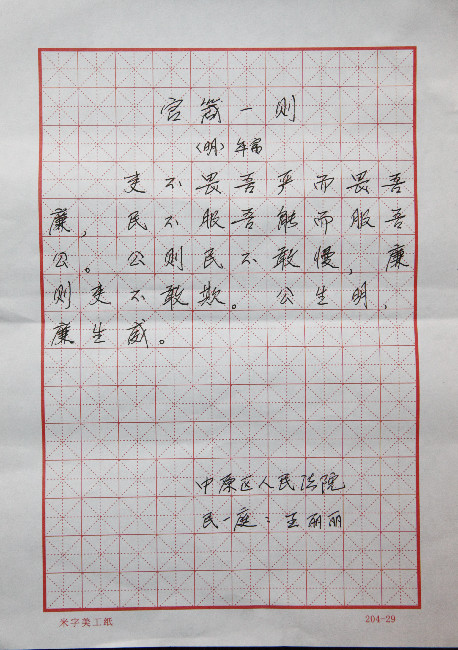 官箴一则
（明）年富
吏不畏吾严而畏吾
廉，民不服吾能而服吾
公。公则民不敢慢，廉
则吏不敢欺。公生明，
廉生威。
中原区人民法院
民一庭：王丽丽
米字美工纸
204-29